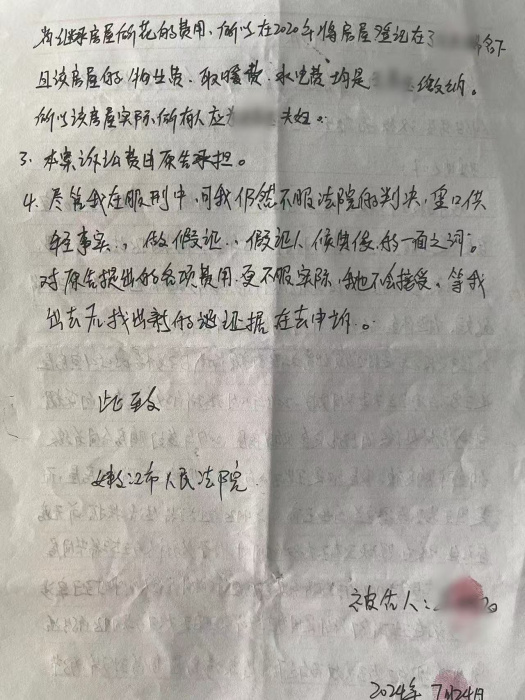 为继承房屋所花的费用，所以在2020年将房屋登记在了 名下
且该房屋的物业费、取暖费、水电费均是 缴纳。
所以该房屋实际所有人应为 夫妇。
3、本案诉讼费由原告承担。
4、尽管我在服刑中，可我仍然不服法院的判决，重口供
轻事实，做假证，假证人 的一面之词。
对原告提出的各项费用更不服实际，我也不会接受。等我
出去后找出新的 证据在去申诉。
此致
嫩江市人民法院
被告人：
2024年7月24日